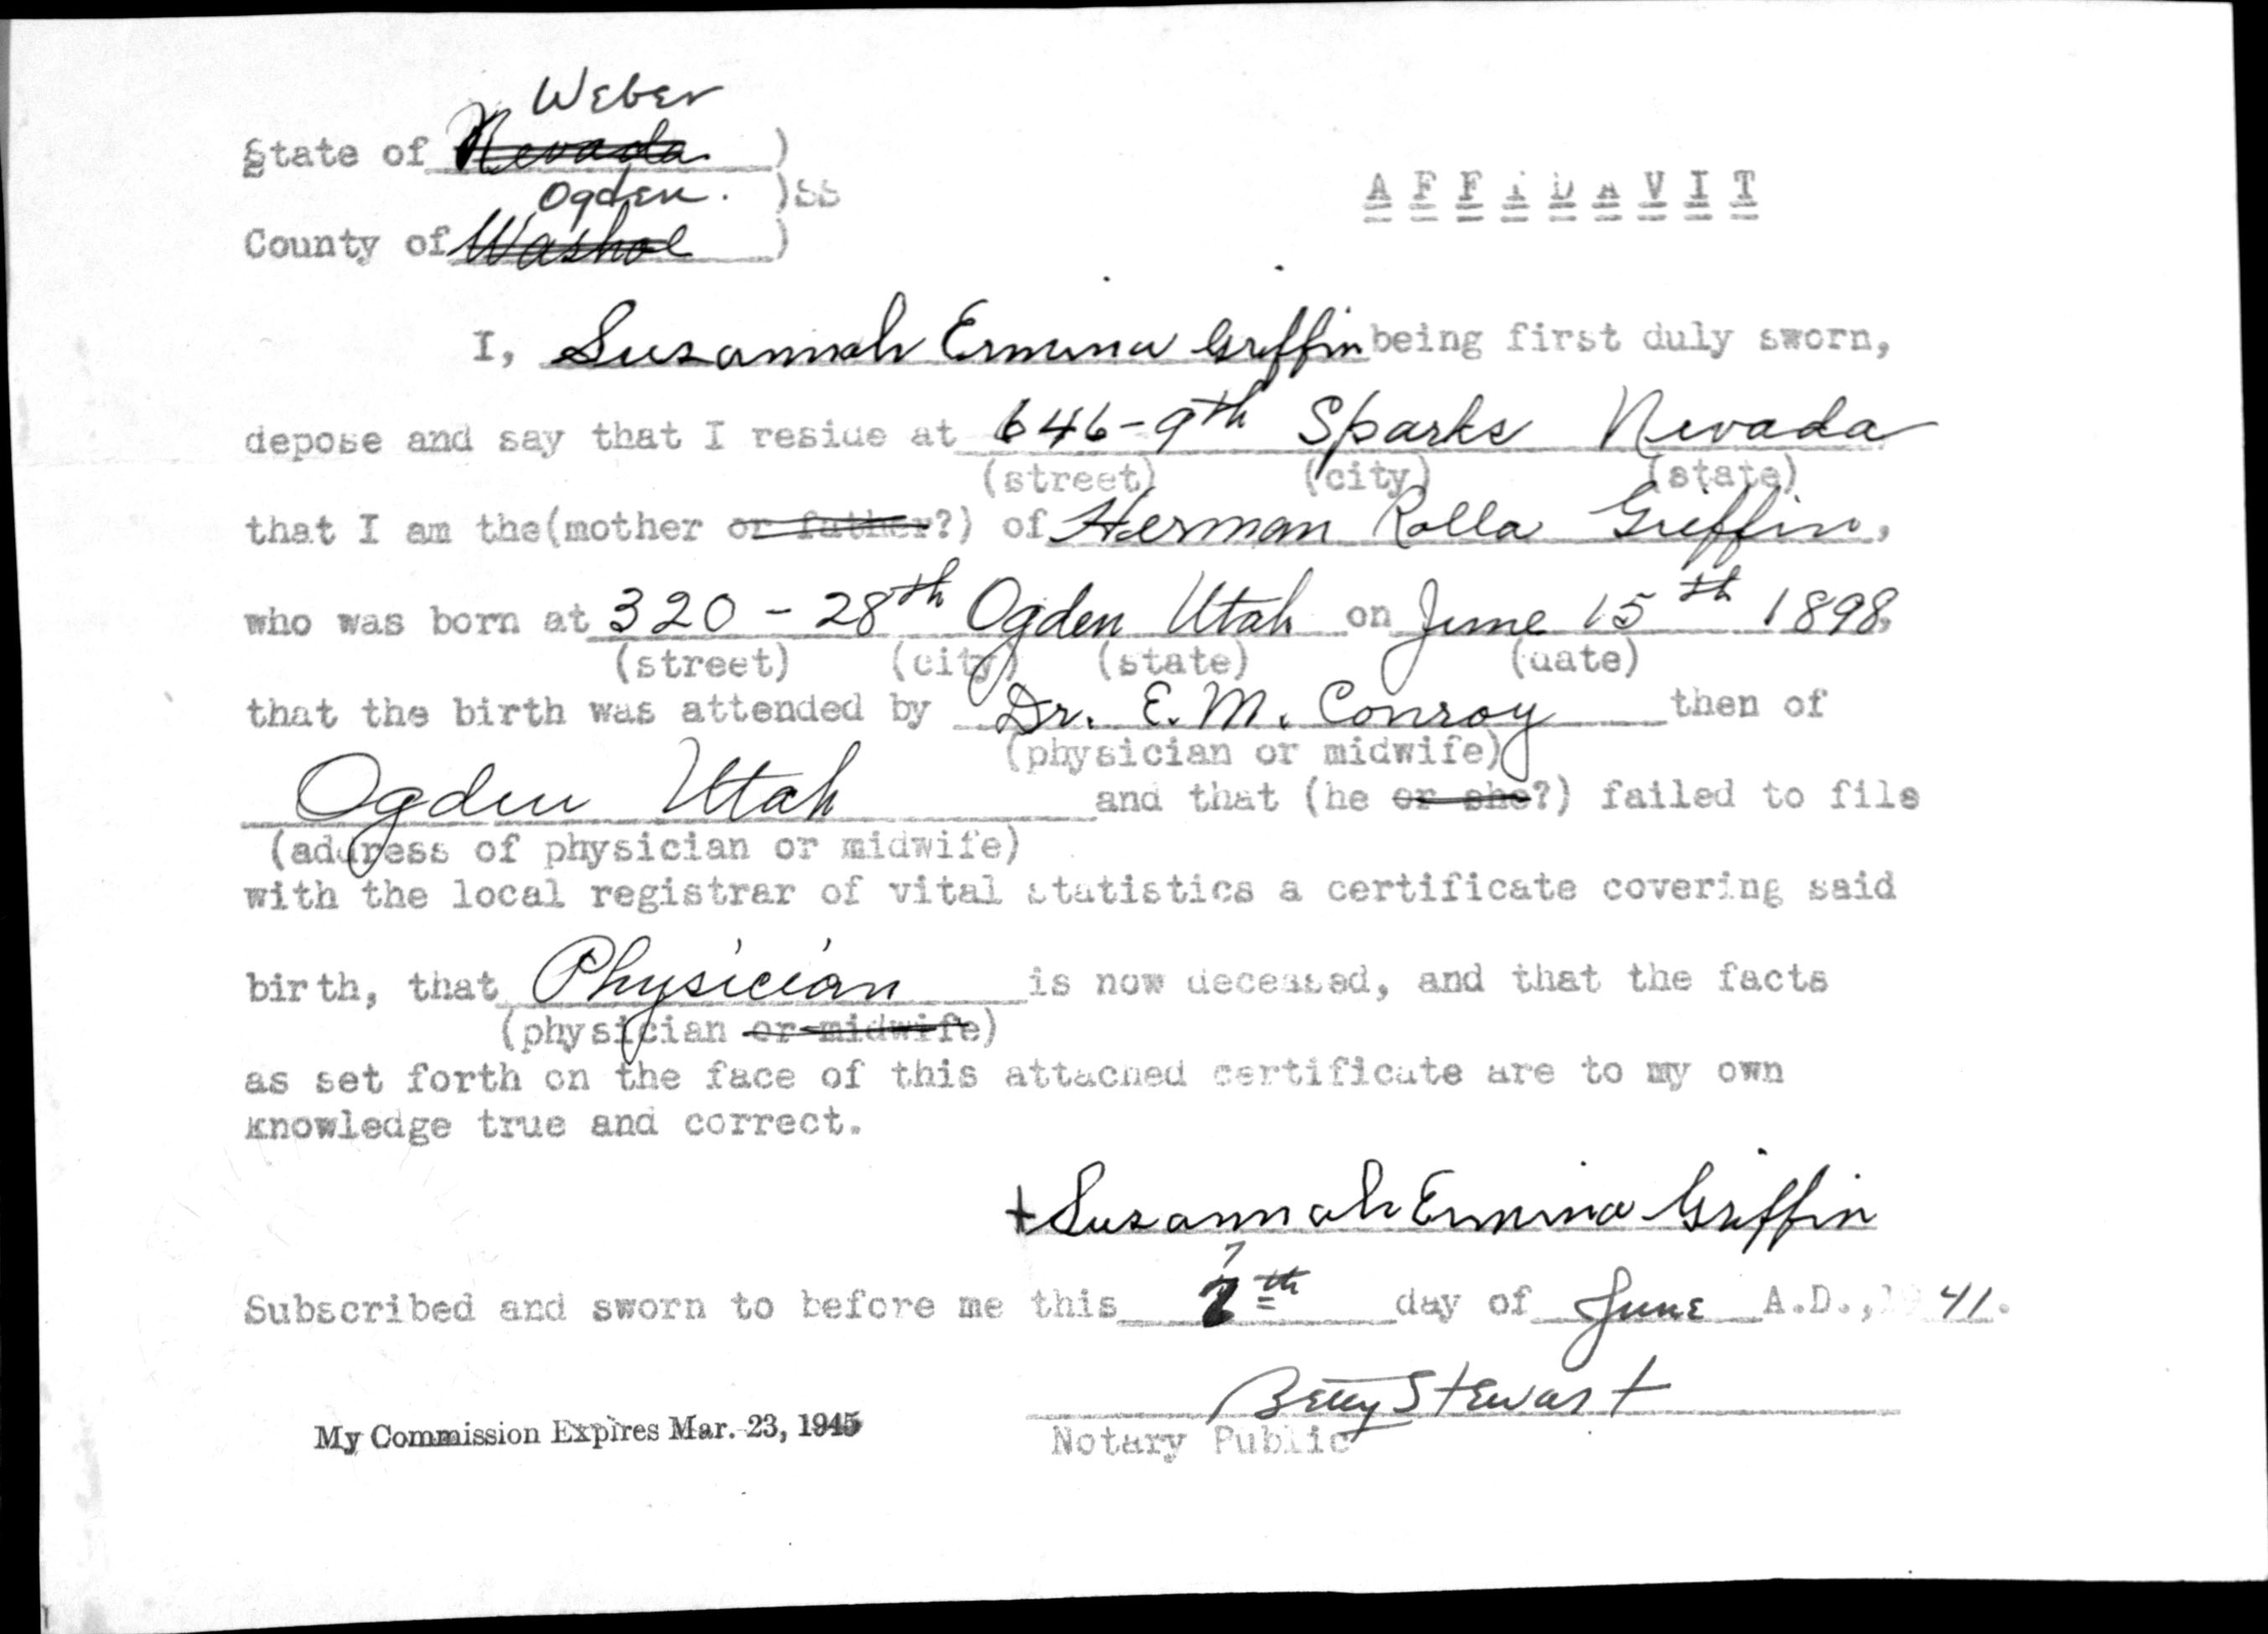 Weber
State of Nevada )
Ogden. )SS
A F F I D A V I T
County of Washoe )
I, Susannah Ermina Griffin being first duly sworn,
depose and say that I reside at 646-9th Sparks Nevada
(street) (city) (state)
that I am the(mother or father?) of Herman Rolla Griffin,
who was born at 320 - 28th Ogden Utah on June 15th 1898,
(street) (city) (state) (date)
that the birth was attended by Dr. E. M. Conroy then of
(physician or midwife)
Ogden Utah and that (he or she?) failed to file
(address of physician or midwife)
with the local registrar of vital statistics a certificate covering said
birth, that Physician is now deceased, and that the facts
(physician or midwife)
as set forth on the face of this attached certificate are to my own
knowledge true and correct.
+ Susannah Ermina Griffin
7
Subscribed and sworn to before me this 7th day of June A.D., 1941.
Betty Stewart
My Commission Expires Mar. 23, 1945
Notary Public